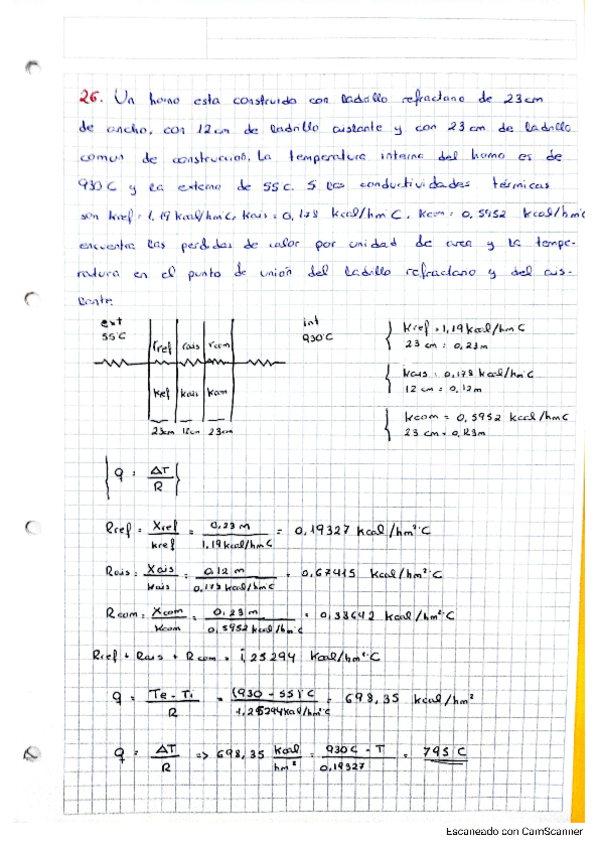 26. Un horno esta construido con ladrillo refractario de 23cm
de ancho, con 12cm de ladrillo aislante y con 23 cm de ladrillo
comun de construccion. La temperatura interna del horno es de
930C y la externa de 55C. Si las conductividades térmicas
son kref = 1,19 kcal/hmC, kais = 0,178 kcal/hmC, kcom = 0,5952 kcal/hmC
encuentra las perdidas de calor por unidad de area y la tempe-
ratura en el punto de unión del ladrillo refractario y del ais-
lante.
ext int
55°C 930°C
rref rais rcom
kref kais kcom
23cm 12cm 23cm
kref = 1,19 kcal/hmC
23 cm = 0,23m
kais = 0,178 kcal/hmC
12 cm = 0,12m
kcom = 0,5952 kcal/hmC
23 cm = 0,23m
q = ΔT/R
Rref = Xref/kref = 0,23 m/1,19 kcal/hmC = 0,19327 kcal/hm²°C
Rais = Xais/kais = 0,12 m/0,178 kcal/hm°C = 0,67415 kcal/hm²°C
Rcom = Xcom/kcom = 0,23 m/0,5952 kcal/hm°C = 0,38642 kcal/hm²°C
Rref + Rais + Rcom = 1,25294 kcal/hm²°C
q = Te - Ti/R = (930 - 55)°C/1,25294 kcal/hm²°C = 698,35 kcal/hm²
q = ΔT/R => 698,35 kcal/hm² = 930C - T/0,19327 = 795 C
Escaneado con CamScanner